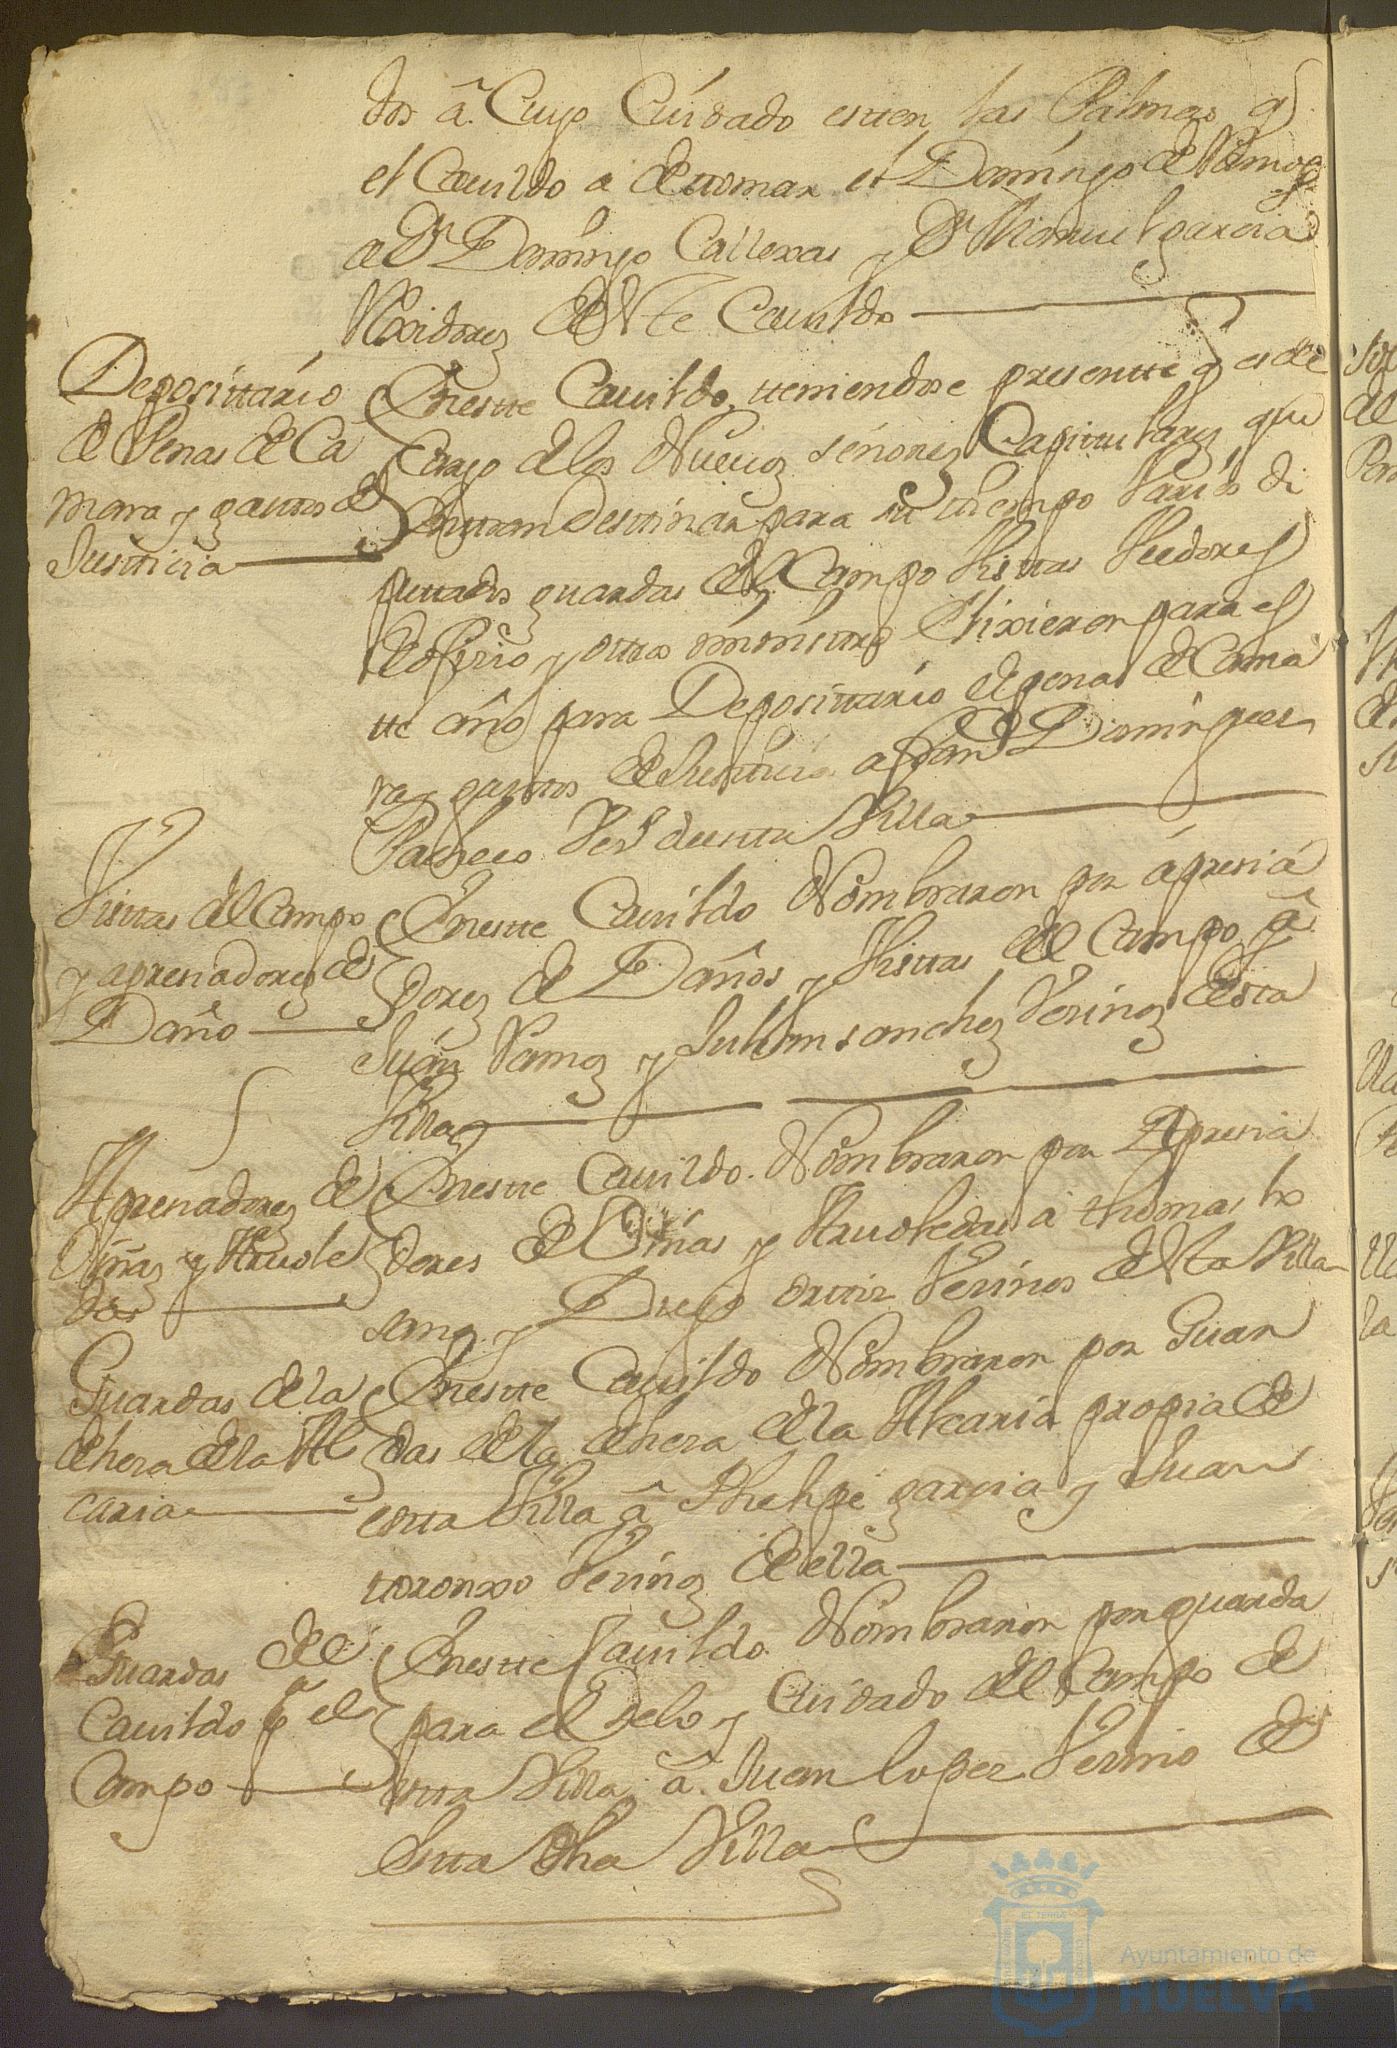 dos â Cuyo Cuidado esten las Palmas q
el Cavildo a de tomar el Domingo de Ramos
a Dn Domingo Callexas y Dn Manuel garcia
Rexidores deste Cavildo
Depositario
de Penas de Ca
mara y gastos de
Justicia
Eneste Cavildo teniendose presentte q es de
Cargo delos Nuevos señores Capitulares que
Entran Destinar para su tiempo Varios di
puttados guardas del Campo Vistas Veedores
de ofisio y otros ELixieron para es
tte año para Deposittario de penas de Cama
ra y gastos de Justicia a Domingues
Pacheco Vesº desta Villa
Vistas del Campo
y apresiadores de
Daño
Eneste Cavildo Nombraron por apresia
dores de Daños y Vistas del Campo â
Juan Ramos y Julian sanches Vesinos desta
Villa
Apresiadores de
Viñas y Arvole
das
Eneste Cavildo Nombraron por Apresia
dores de Viñas y Arvoledas â thomas lo
sano y Diego ortiz Vesinos desta Villa
Guardas de la
dehesa de la Al
caria
Eneste Cavildo Nombraron por Guar
das de la dehesa de la Alcaria propia de
esta Villa â Phelipe garcia y Juan
toronxo Vesinos de ella
Guardas de
Cavildo pª el
Campo
Eneste Cavildo Nombraron por guarda
para el selo y Cuidado del Campo de
esta Villa â Juan lopez Vesino de
Esta dha Villa
Ayuntamiento de
HUELVA